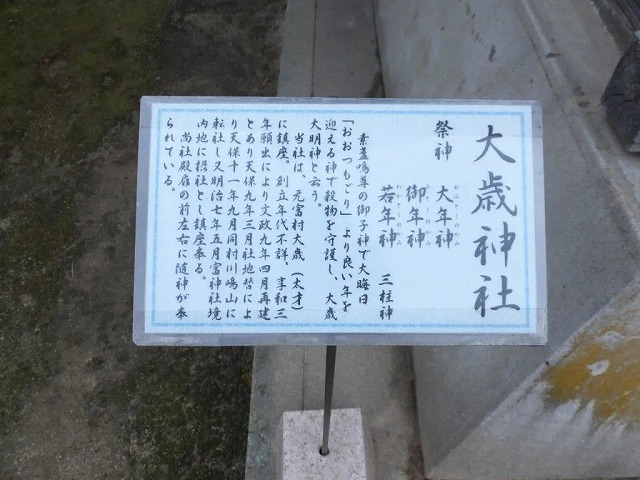 大歳神社
祭神 大年神
おほとしのかみ
御年神
みとしのかみ
若年神 三柱神
わかとしのかみ
素盞嗚尊の御子神で大晦日
「おおつもごり」より良い年を
迎える神で穀物を守護し、大歳
大明神と云う。
当社は、元富村大歳（太才）
に鎮座、創立年代不詳、享和三
年願出により文政九年四月再建
とあり天保九年三月社地替によ
り天保十一年九月同村川嶋山に
転社し又明治七年五月富神社境
内地に摂社とし鎮座奉る。
尚社殿扉の前左右に随神が奉
られている。